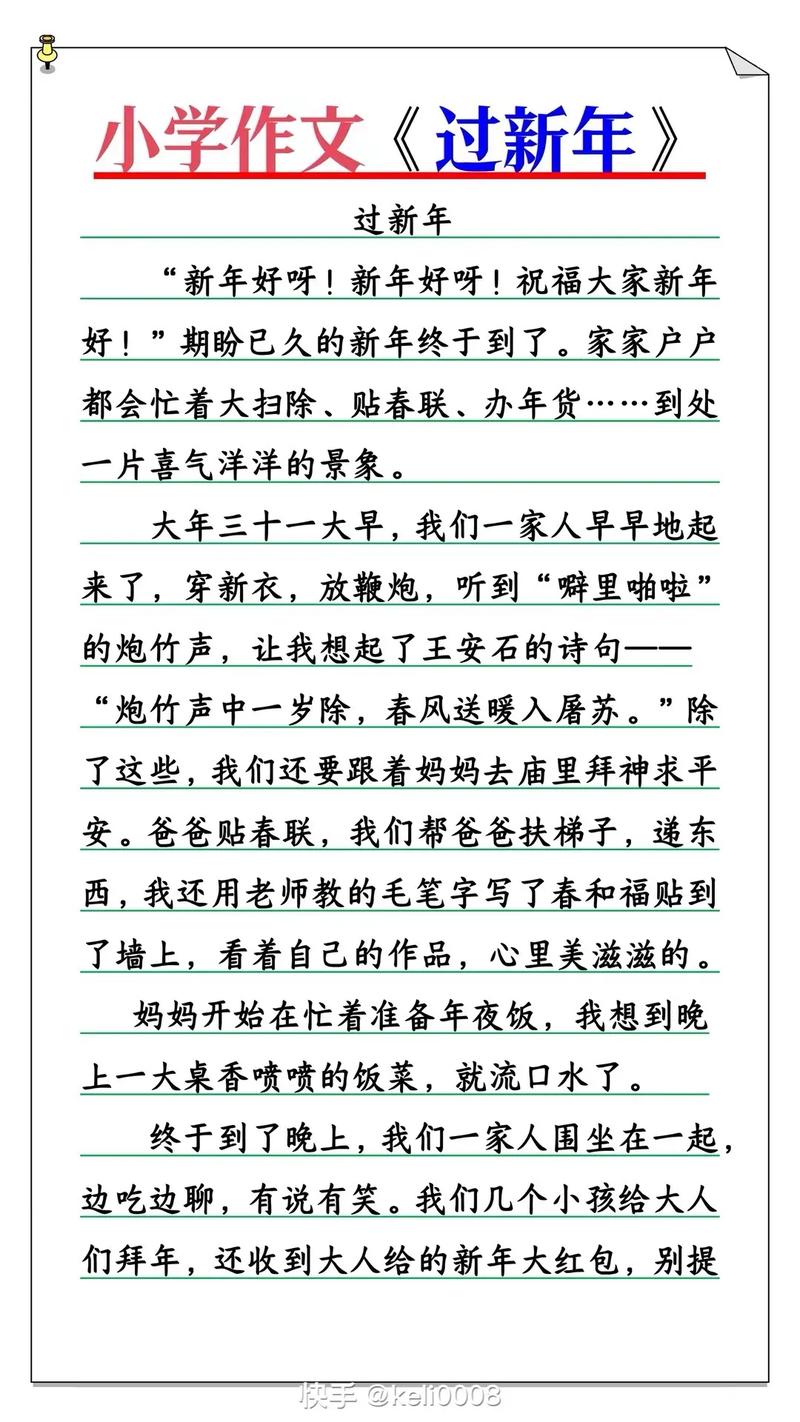 小学作文《过新年》
过新年
“新年好呀！新年好呀！祝福大家新年
好！”期盼已久的新年终于到了。家家户户
都会忙着大扫除、贴春联、办年货……到处
一片喜气洋洋的景象。
大年三十一大早，我们一家人早早地起
来了，穿新衣，放鞭炮，听到“噼里啪啦”
的炮竹声，让我想起了王安石的诗句——
“炮竹声中一岁除，春风送暖入屠苏。”除
了这些，我们还要跟着妈妈去庙里拜神求平
安。爸爸贴春联，我们帮爸爸扶梯子，递东
西，我还用老师教的毛笔字写了春和福贴到
了墙上，看着自己的作品，心里美滋滋的。
妈妈开始在忙着准备年夜饭，我想到晚
上一大桌香喷喷的饭菜，就流口水了。
终于到了晚上，我们一家人围坐在一起，
边吃边聊，有说有笑。我们几个小孩给大人
们拜年，还收到大人给的新年大红包，别提
快手 @keli0008